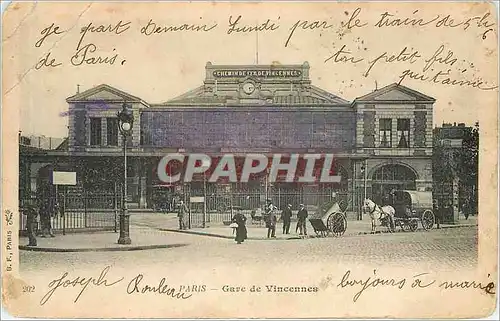 je part Demain Lundi par le train de 5h
de Paris.
ton petit fils
qui t'aime
CHEMIN DE FER DE VINCENNES
CPAPHIL
B. F., Paris
202
PARIS - Gare de Vincennes
Joseph
bonjours à marie